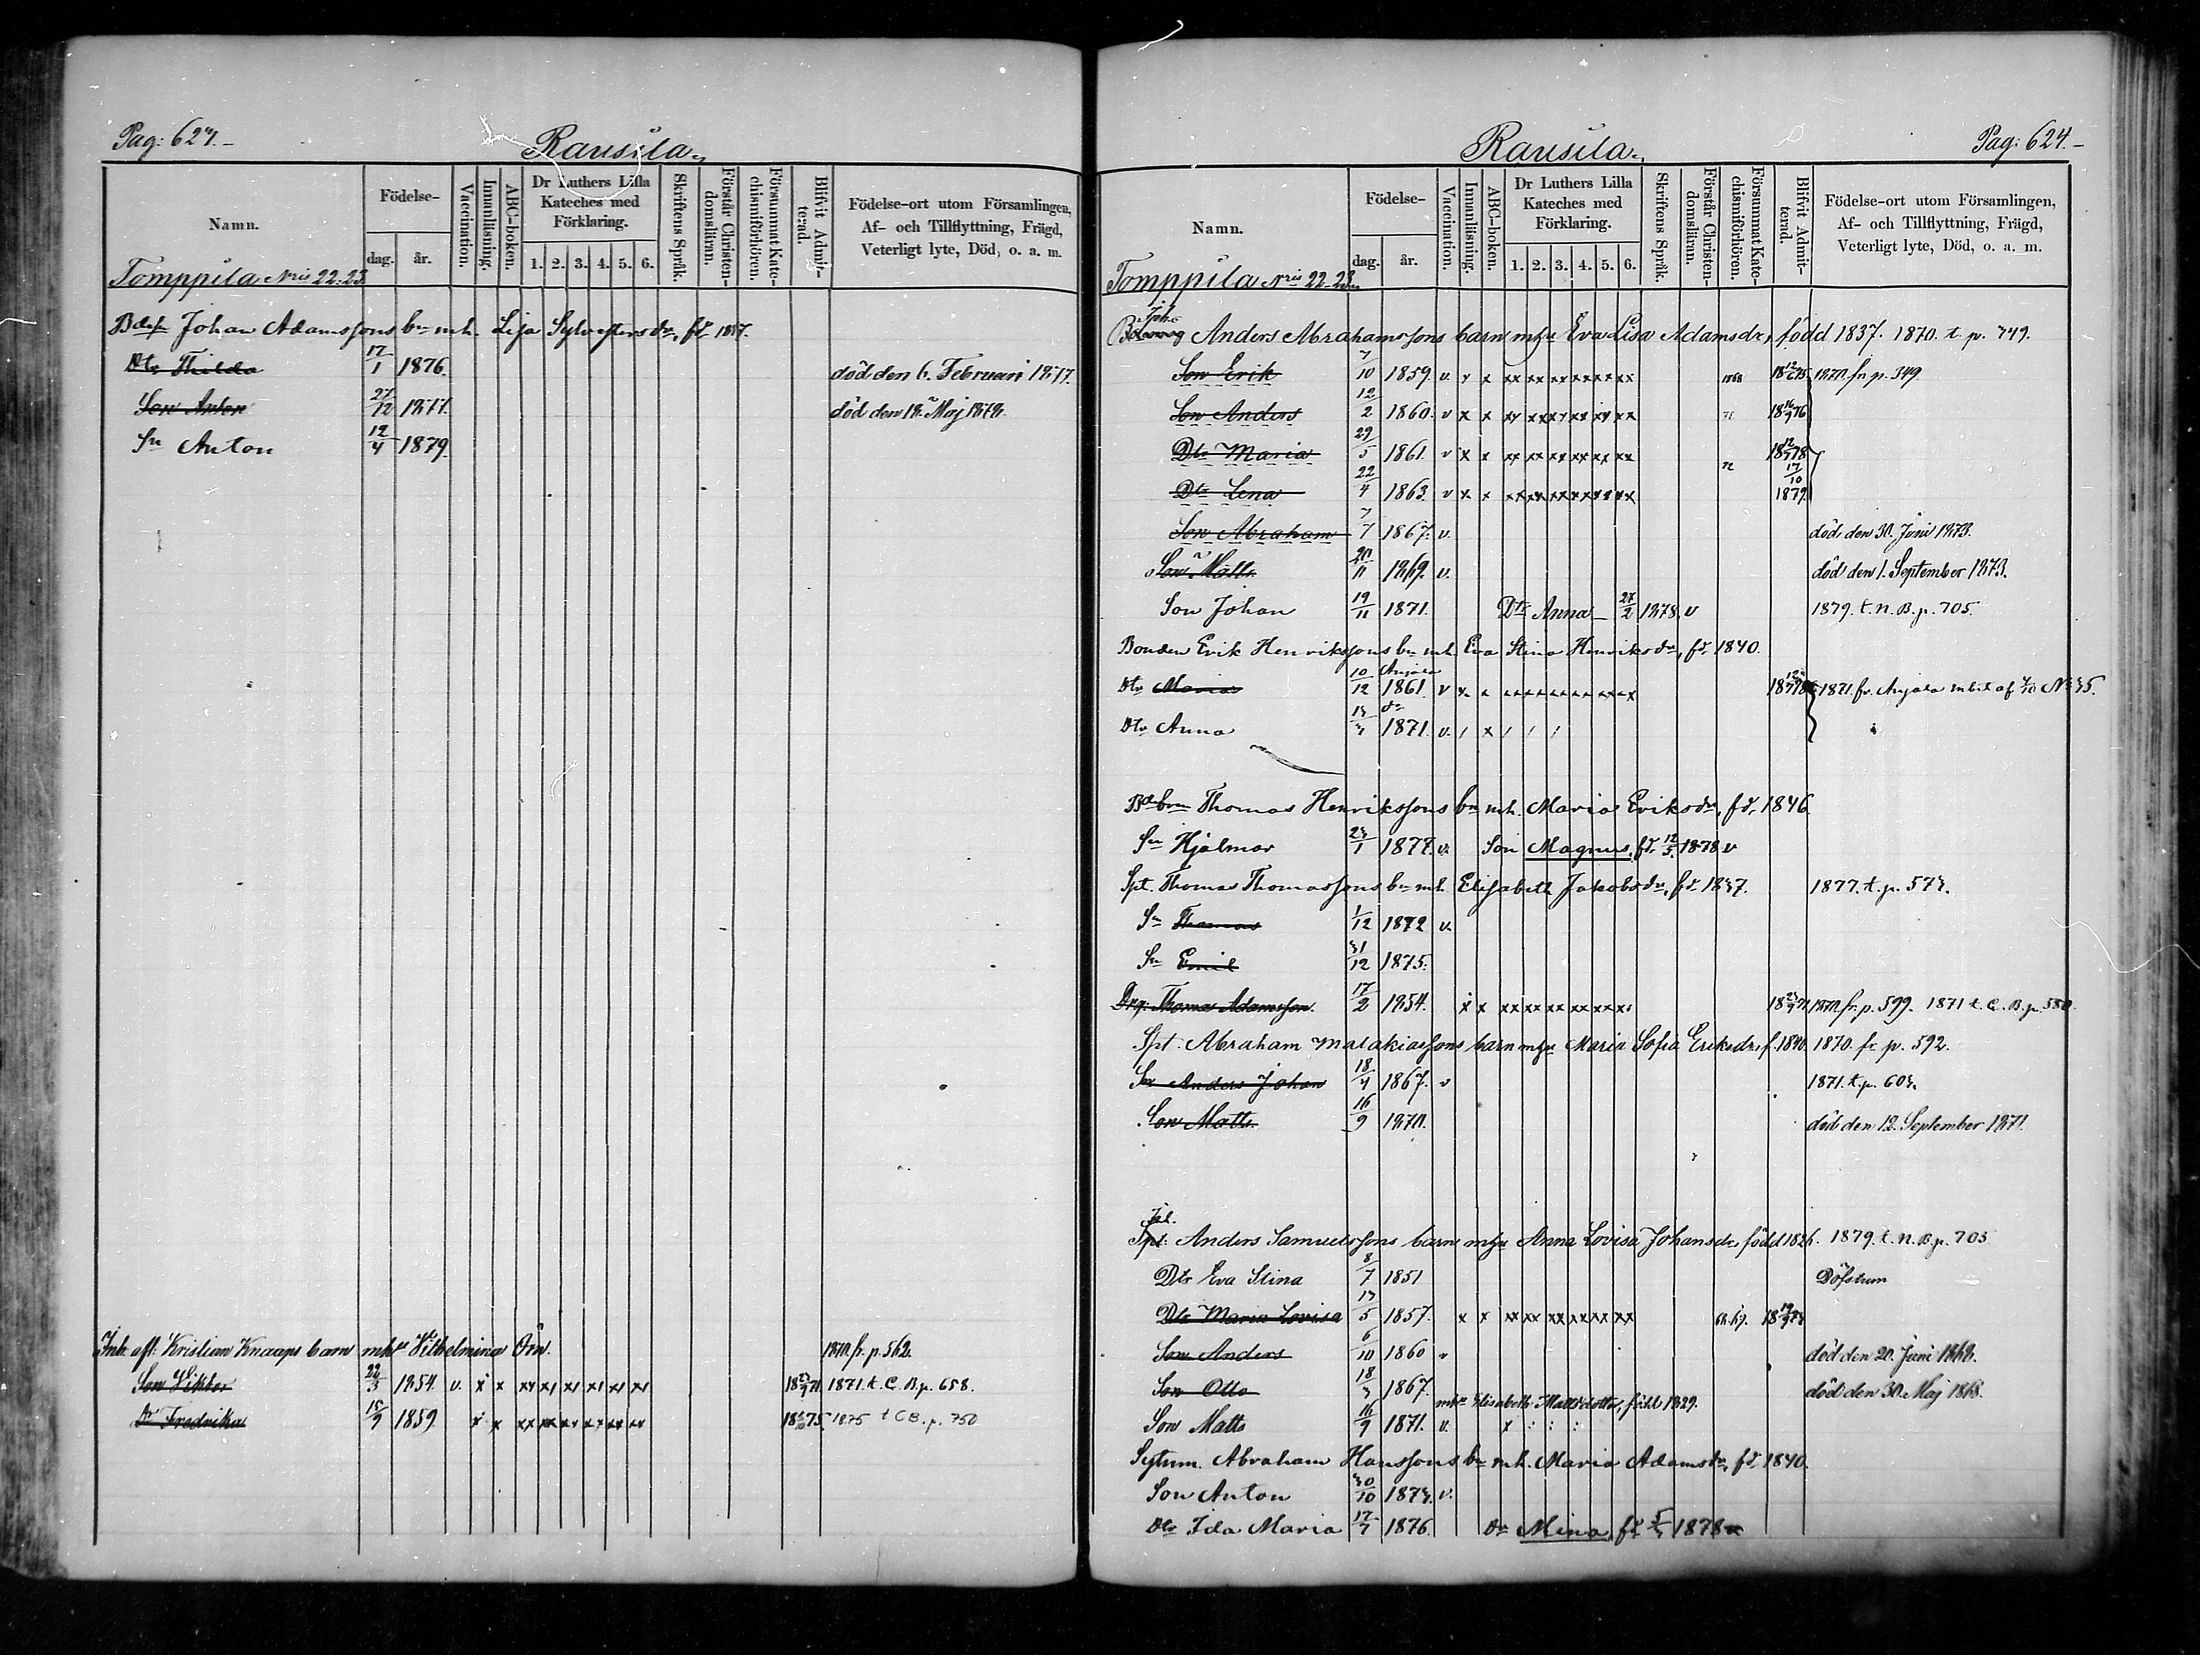 Pag: 623.
Rausila.
Namn.
Födelse-
dag. år.
Vaccination.
Innanläsning.
ABC-boken.
Dr Luthers Lilla Kateches med Förklaring.
1. 2. 3. 4. 5. 6.
Skriftens Språk.
Förstår Christendomsläran.
Försummat Katechismiförhören.
Blifvit Admitterad.
Födelse-ort utom Församlingen,
Af- och Tillflyttning, Frägd,
Veterligt lyte, Död, o. a. m.
Tomppila Nris 22-23.
Johan Adamssons bn mh. Lisa Sylvestersdr, fd
Dtr Thilda 17/1 1876. död den 6. Februari 1877.
Son Anton 27/12 1877. död den 18. Maj 1878.
Sn Anton 12/4 1879.
Inh. aft. Kristian Knaaps barn mhu Vilhelmina Örn. 1870. fr. p. 562.
Son Viktor 22/3 1854. v. x x 1871. t. C. B. p. 658.
Dr Fredrika 15/9 1859. x x 1875 t CB. p. 750
Pag: 624.
Rausila.
Namn.
Födelse-
dag. år.
Vaccination.
Innanläsning.
ABC-boken.
Dr Luthers Lilla Kateches med Förklaring.
1. 2. 3. 4. 5. 6.
Skriftens Språk.
Förstår Christendomsläran.
Försummat Katechismiförhören.
Blifvit Admitterad.
Födelse-ort utom Församlingen,
Af- och Tillflyttning, Frägd,
Veterligt lyte, Död, o. a. m.
Tomppila Nris 22-23.
Anders Abrahamssons barn mhu Eva Lisa Adamsdr, född 1837. 1870. t. p. 749.
Son Erik 7/10 1859. v. x x xx xx xx xx xx xx 1870. fr p. 349.
Son Anders 12/2 1860. v x x xx xx xx xx xx xx 18 16/9 76
Dtr Maria 29/5 1861. v x x xx xx xx xx xx xx
Dtr Lena 22/4 1863. v x x xx xx xx xx xx xx 17/10 1879.
Son Abraham 7/7 1867. v. död den 30. Juni 1873.
Son Matts 20/11 1869. v. död den 1. September 1873.
Son Johan 19/11 1871. Dtr Anna - 27/2 1878. v 1879. t. n. B. p. 705.
Bonden Erik Henrikssons bn mh Eva Stina Henriksdr, fd. 1840.
Dtr Maria 10/12 Anjala 1861. v x x 1871. fr. Anjala m bet af
Dtr Anna 1871. v. / x / / /
Thomas Henrikssons bn mh. Maria Eriksdr, fd. 1846.
Sn Hjalmar 23/1 1877. v. Son Magnus, fd. 12/5 1878 v
Spt. Thomas Thomassons bn mh Elisabeth Jakobsdr, fd 1837. 1877. t. p. 573.
Sn Thomas 1/12 1872 v.
Sn Emil 31/12 1875.
Drg. Thomas Adamsson. 17/2 1854. x x xx xx xx xx xx 1870. fr. p. 599. 1871 t. C. B. p. 580.
Spt. Abraham Malakiassons barn mhu Maria Sofia Eriksdr, f. 1840. 1870. fr p. 592.
Sn Anders Johan 18/4 1867. v 1871. t. p. 603.
Son Matts 16/9 1870. död den 12. September 1871.
Anders Samuelssons barn mhu Anna Lovisa Johansdr, född 1826. 1879. t. n. B. p. 705
Dtr Eva Stina 8/7 1851 Döfstum
Dtr Maria Lovisa 13/5 1857. x x xx xx xx xx xx xx
Son Anders 6/10 1860 v död den 20. Juni 1868.
Son Otto 18/3 1867. död den 30. Maj 1868.
mhu Elisabeth Mattsdotter, född 1829.
Son Matts 16/9 1871. v.
Sytnm. Abraham Hanssons bn mh. Maria Adamsdr, fd 1840.
Son Anton 30/10 1873. v.
Dtr Ida Maria 17/7 1876. Dr Mina, fd 1878